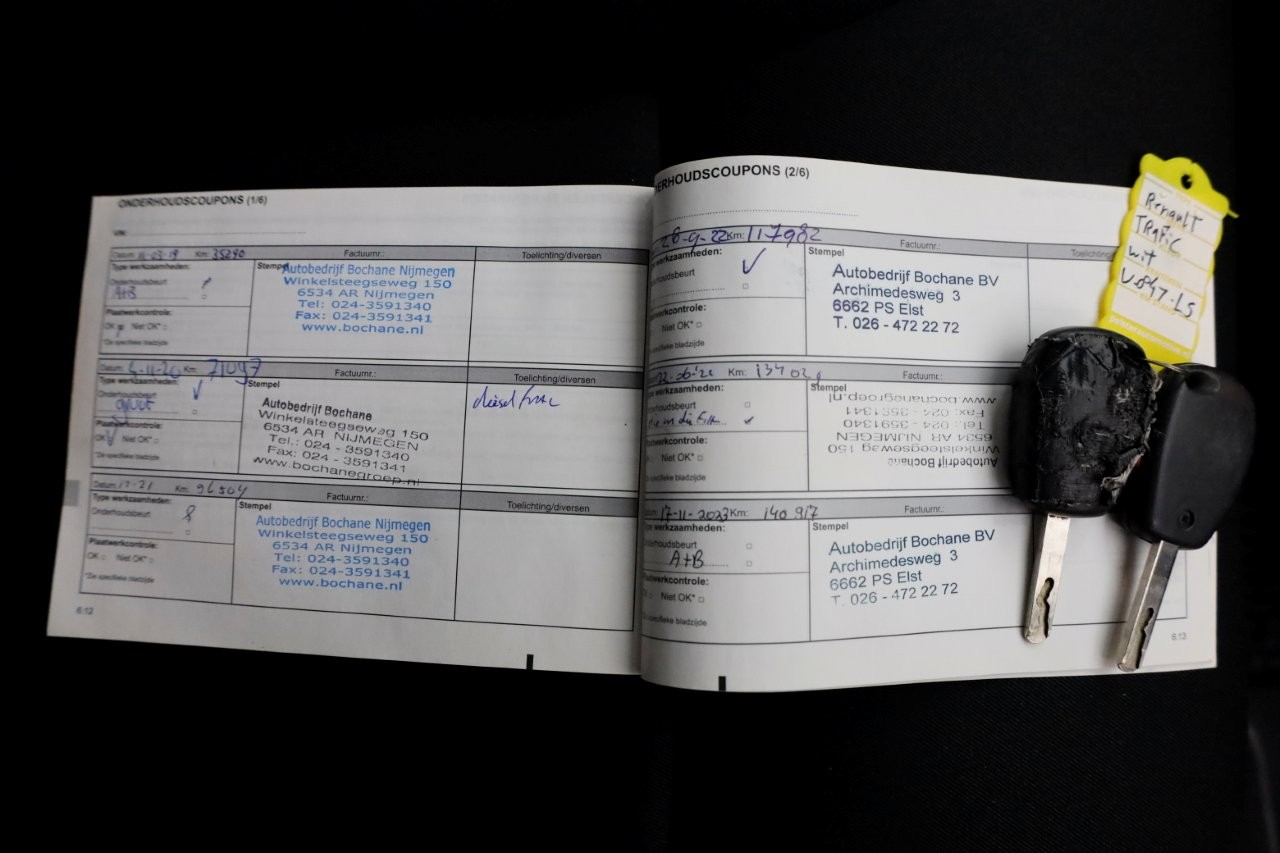 ONDERHOUDSCOUPONS (1/6)
VIN:
Datum: 11-03-19 Km: 35290 Factuurnr.: Toelichting/diversen
Type werkzaamheden:
Onderhoudsbeurt
A+B
Plaatwerkcontrole:
OK Niet OK*
*Zie specifieke bladzijde
Stempel
Autobedrijf Bochane Nijmegen
Winkelsteegseweg 150
6534 AR Nijmegen
Tel: 024-3591340
Fax: 024-3591341
www.bochane.nl
Datum: Km: 71097 Factuurnr.: Toelichting/diversen
Type werkzaamheden:
Onderhoudsbeurt
Plaatwerkcontrole:
OK Niet OK*
*Zie specifieke bladzijde
Stempel
Autobedrijf Bochane
Winkelsteegseweg 150
6534 AR NIJMEGEN
Tel.: 024 - 3591340
Fax: 024 - 3591341
www.bochanegroep.nl
diesel
Datum: Km: 96504 Factuurnr.: Toelichting/diversen
Type werkzaamheden:
Onderhoudsbeurt
Plaatwerkcontrole:
OK Niet OK*
*Zie specifieke bladzijde
Stempel
Autobedrijf Bochane Nijmegen
Winkelsteegseweg 150
6534 AR Nijmegen
Tel: 024-3591340
Fax: 024-3591341
www.bochane.nl
6.12
ERHOUDSCOUPONS (2/6)
26-9-22 Km: 117982 Factuurnr.:
werkzaamheden:
Plaatwerkcontrole:
Niet OK*
specifieke bladzijde
Stempel
Autobedrijf Bochane BV
Archimedesweg 3
6662 PS Elst
T. 026 - 472 22 72
Km: Factuurnr.:
werkzaamheden:
Niet OK*
specifieke bladzijde
Stempel
Autobedrijf Bochane
Winkelsteegseweg 150
6534 AR NIJMEGEN
Tel.: 024 - 3591340
Fax: 024 - 3591341
www.bochanegroep.nl
17-11-2023 Km: 140917 Factuurnr.:
werkzaamheden:
A+B
Niet OK*
specifieke bladzijde
Stempel
Autobedrijf Bochane BV
Archimedesweg 3
6662 PS Elst
T. 026 - 472 22 72
6.13
Renault
TRafic
wit
V-847-LS